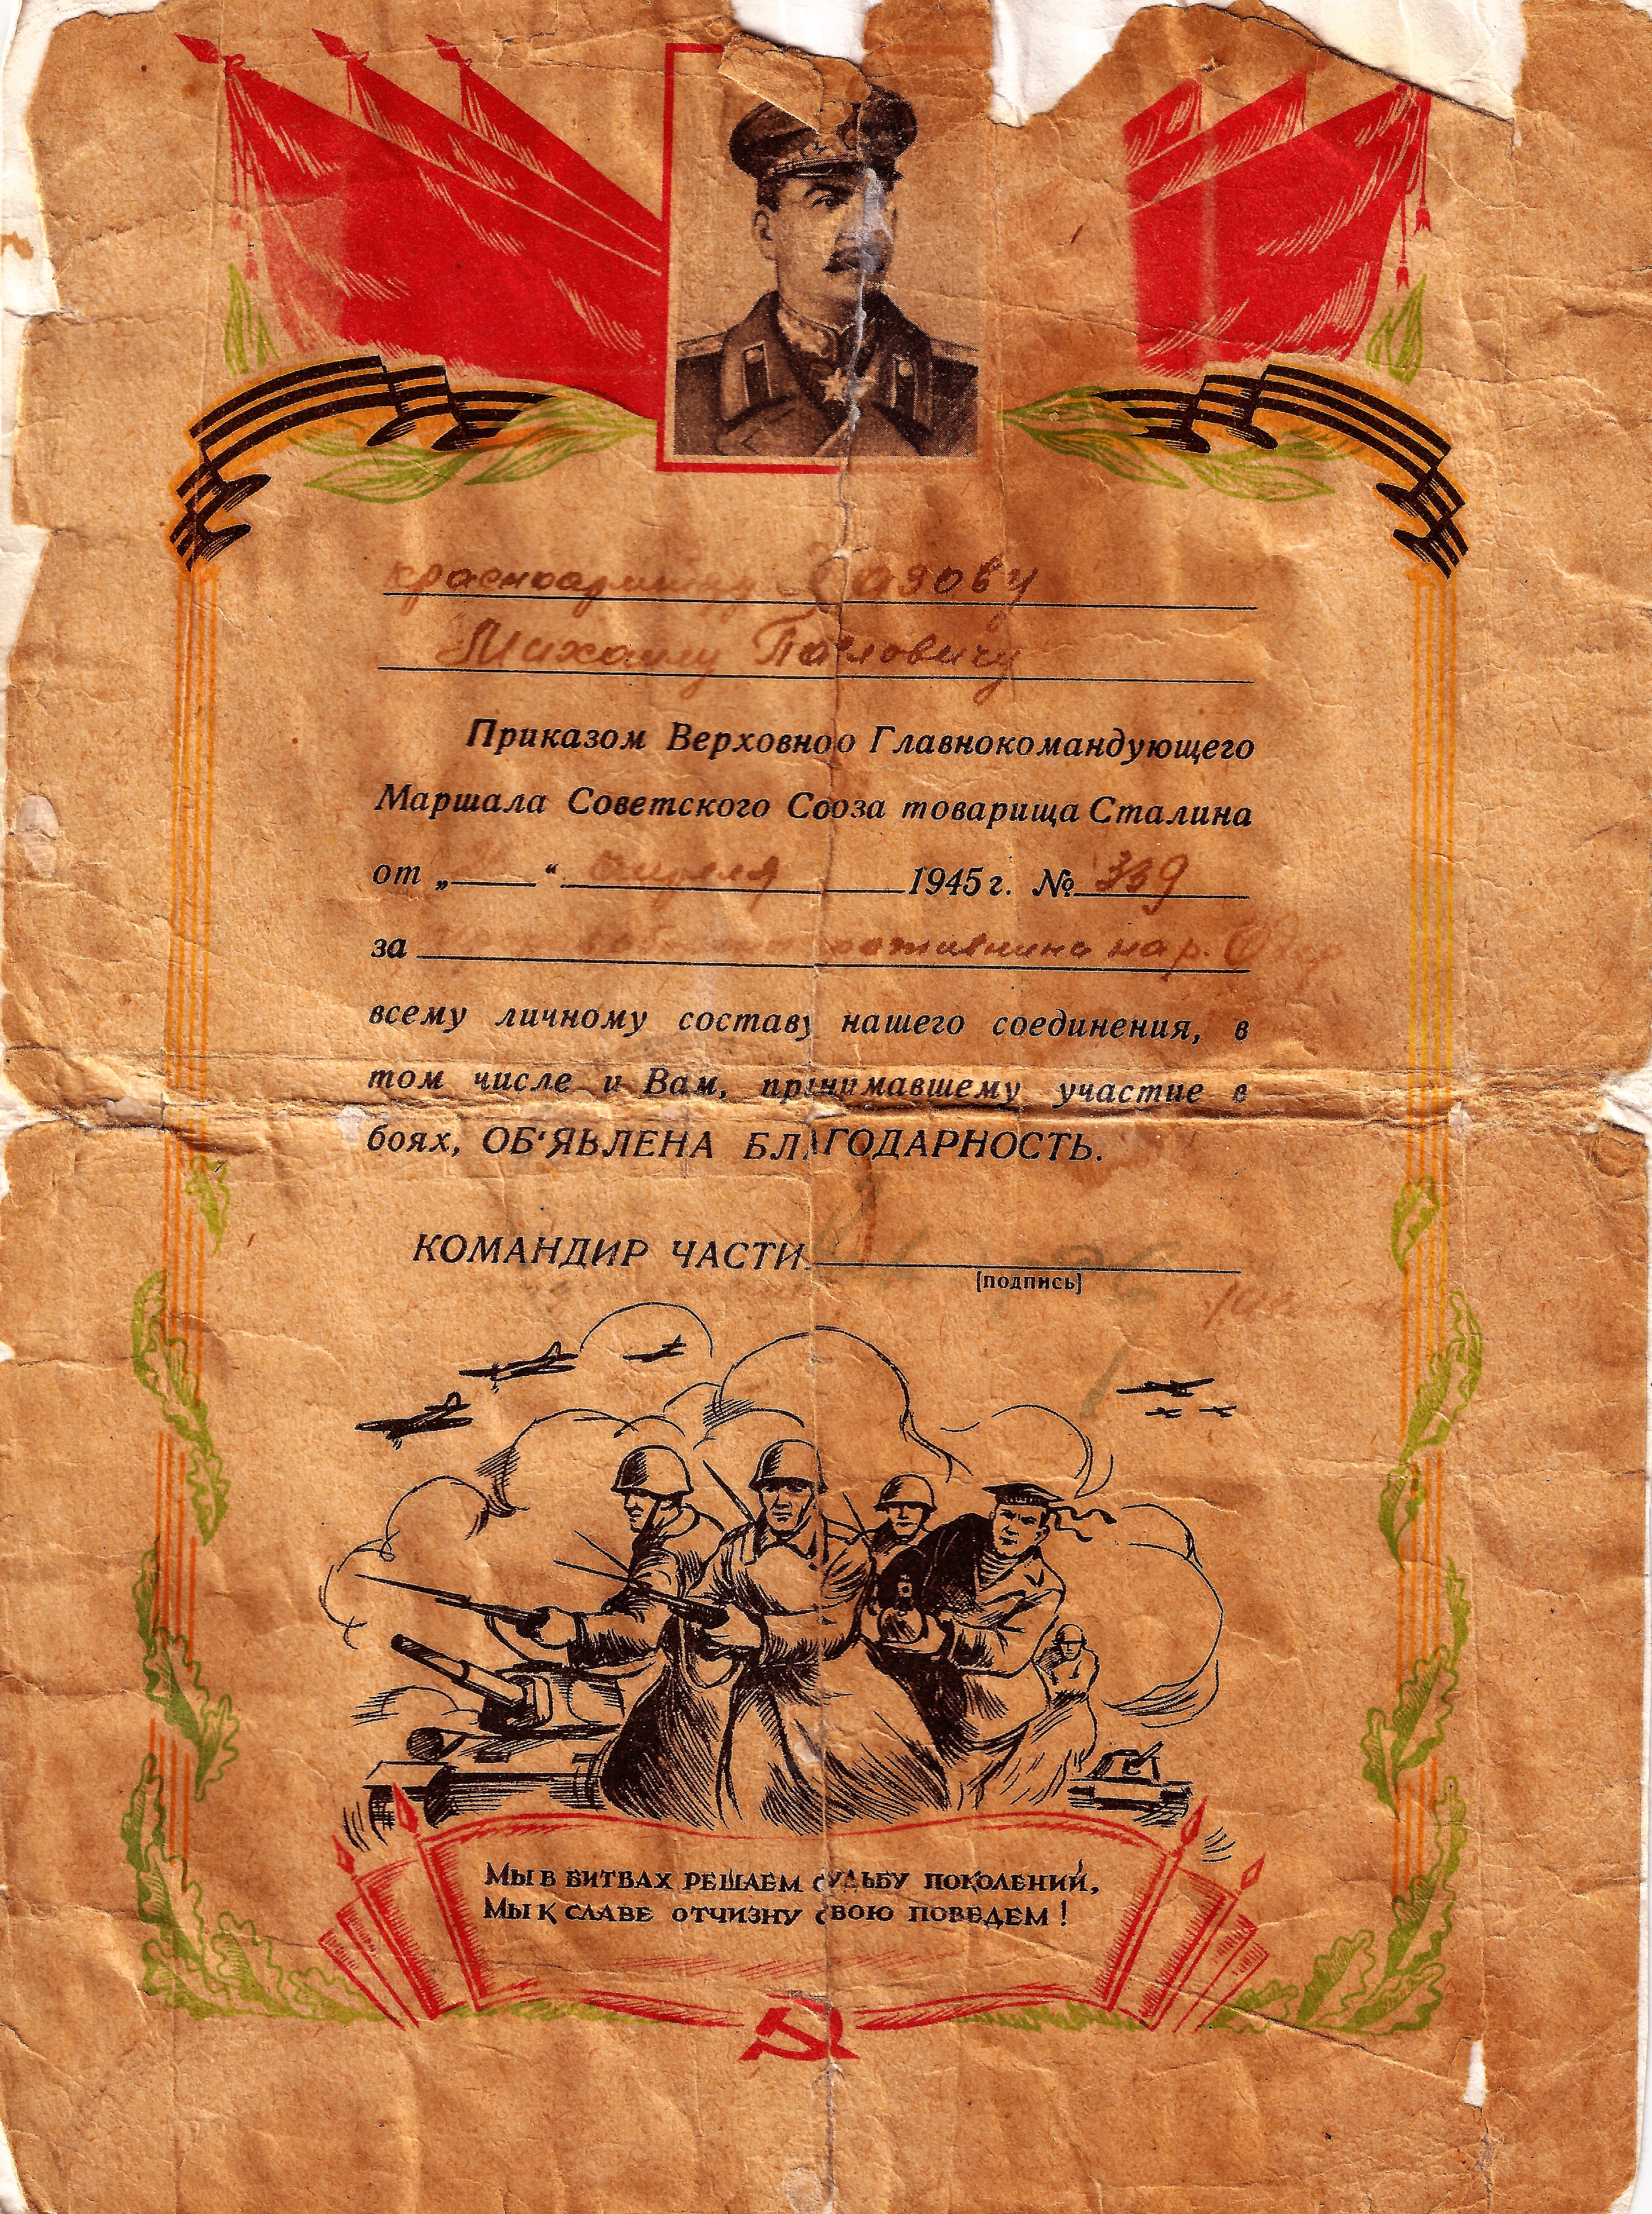 красноармейцу Лазову
Михаилу Павловичу
Приказом Верховно о Главнокомандующего
Маршала Советского Сооза товарища Сталина
от „ “ апреля 1945 г. № 339
за на р.
всему личному составу нашего соединения, в
том числе и Вам, принимавшему участие в
боях, ОБ'ЯВЛЕНА БЛАГОДАРНОСТЬ.
КОМАНДИР ЧАСТИ
[подпись]
Мы в битвах решаем судьбу поколений,
Мы к славе отчизну свою поведем!